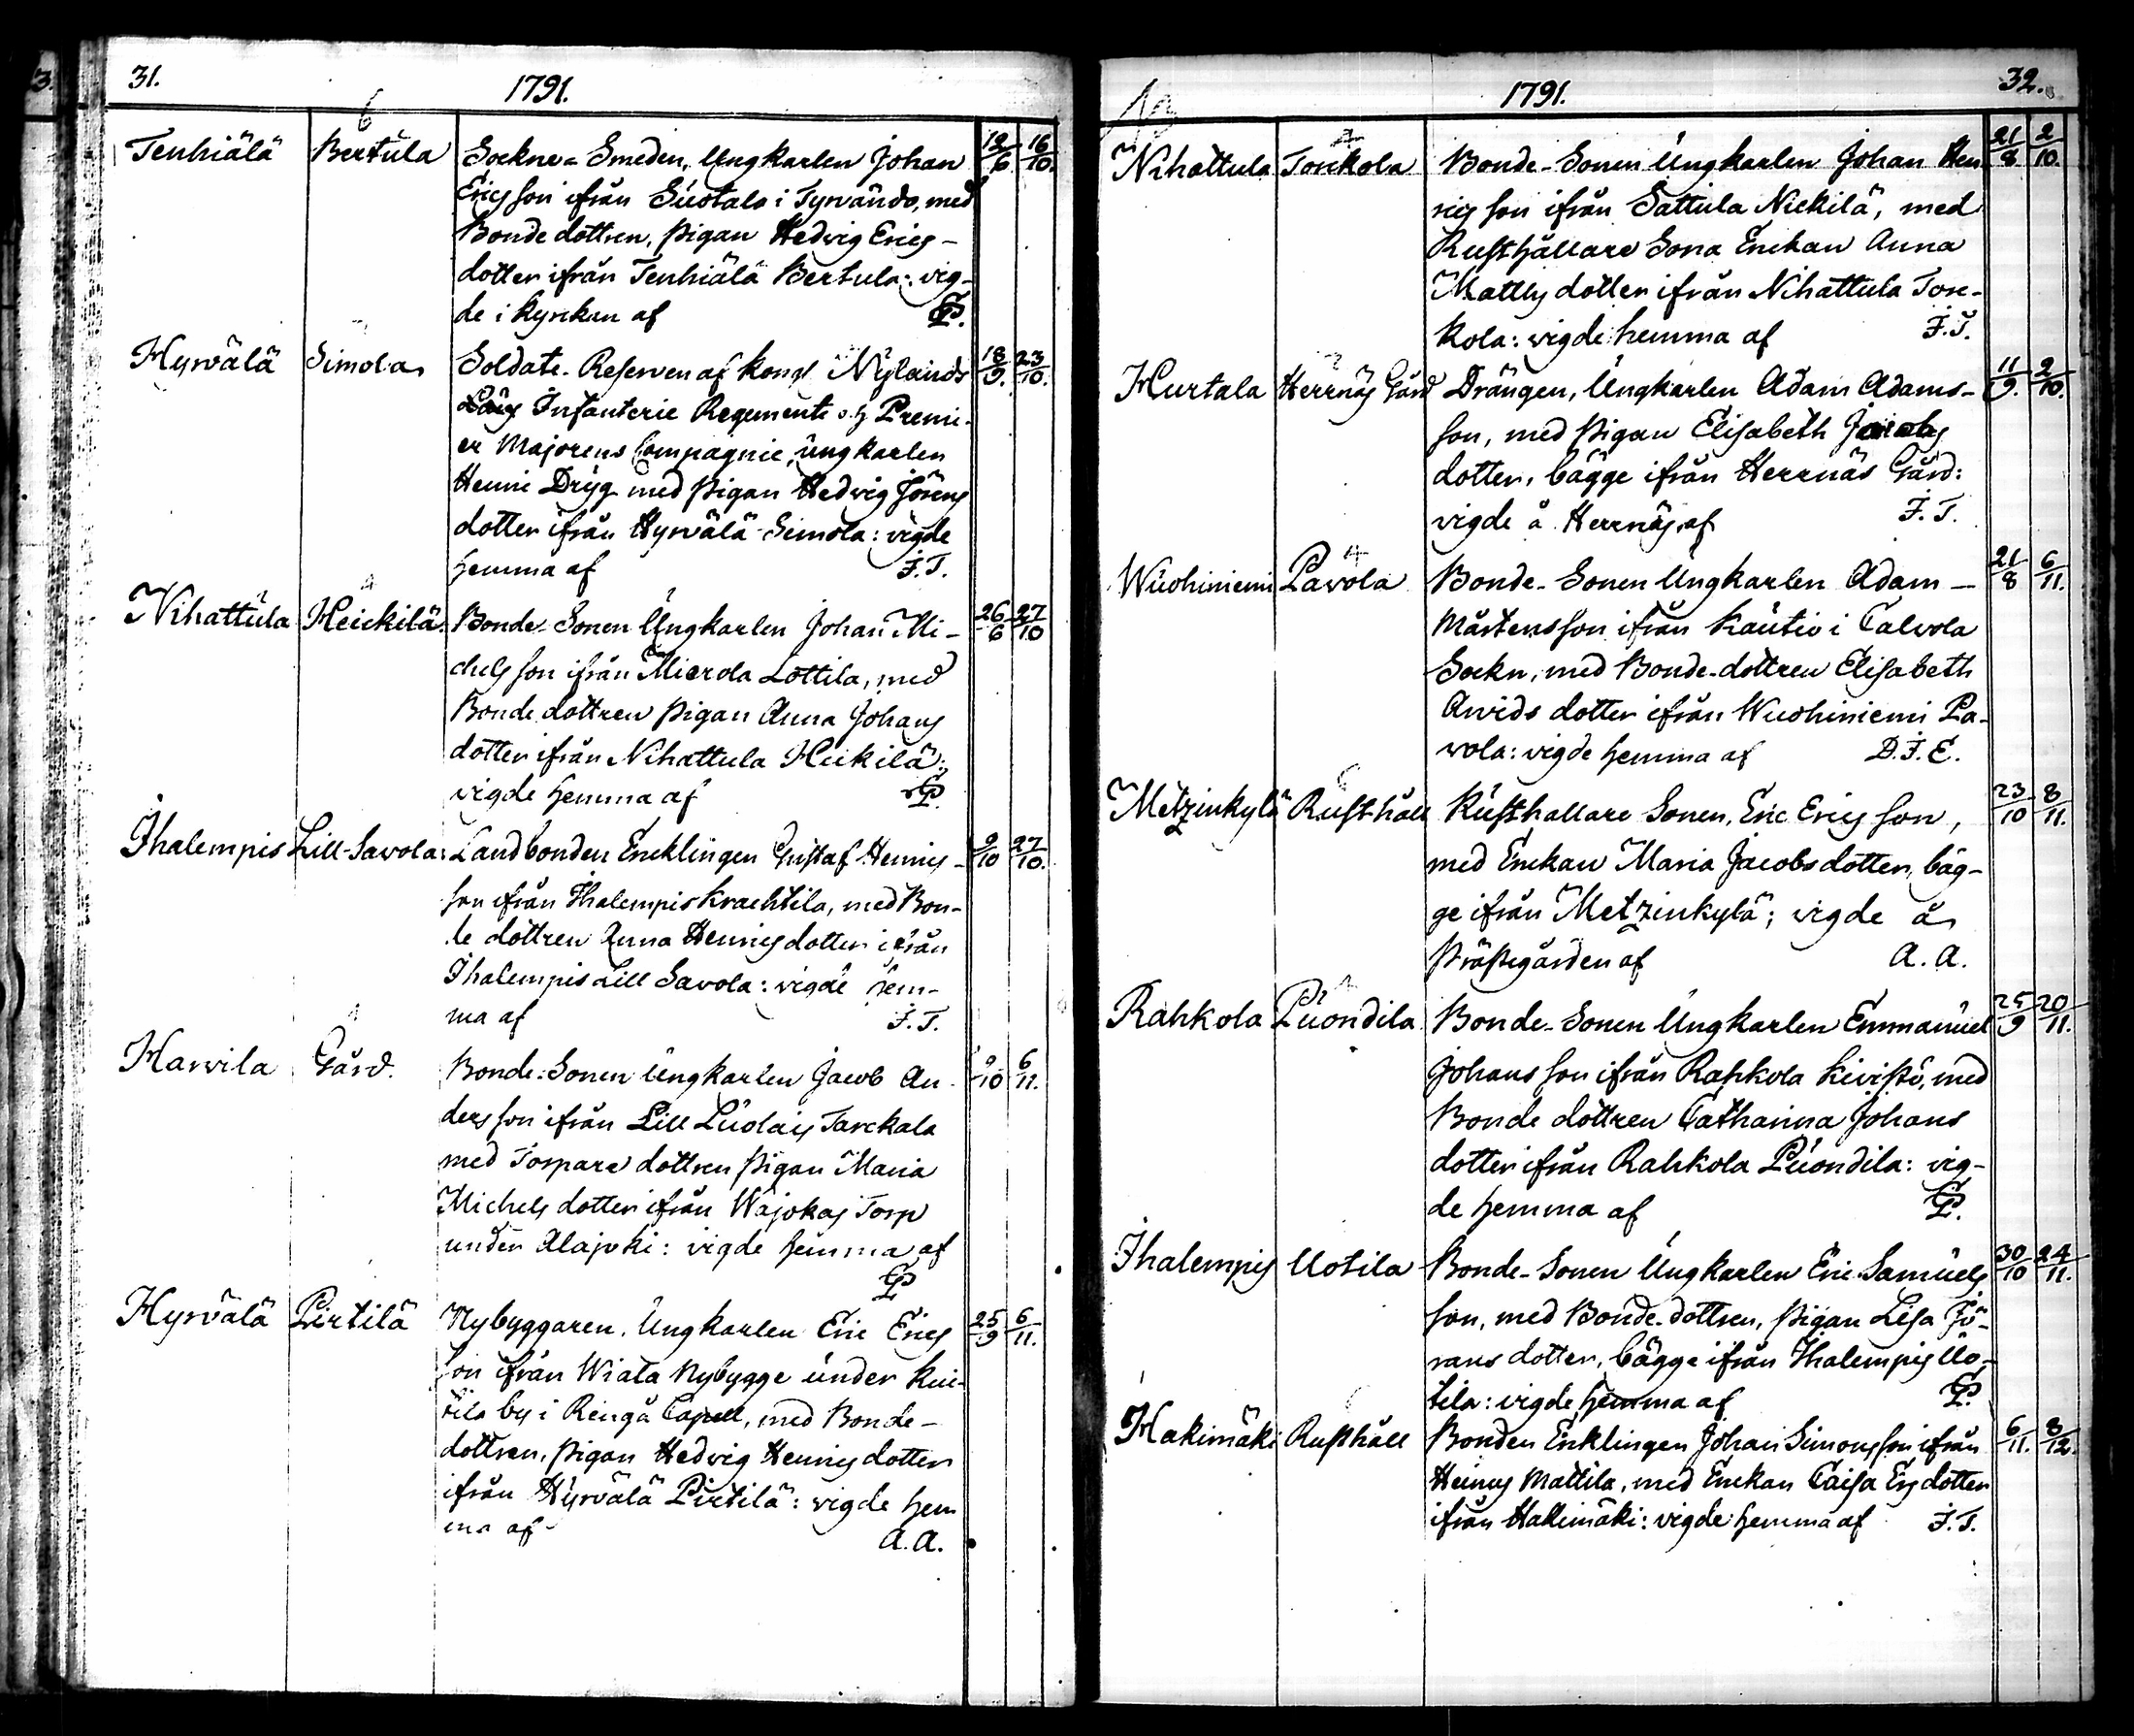 31.
1791.
Tenhiälä Bertula Sockne-Smeden, Ungkarlen Johan 12/6 16/10.
Ericsson ifrån Suotala i Tyrvändö, med
Bonde dottren, pigan Hedvig Erics-
dotter ifrån Tenhiälä Bertula: vig-
de i kyrkan af
Hyrvälä Simola Soldate-Reserven af Kongl Nylands 18/9. 23/10.
Läns Infanterie Regemente o. Premi-
er Majorens Compagnie, ungkarlen
Henric Dryg med pigan Hedvig Jörens
dotter ifrån Hyrvälä Simola: vigde
hemma af J.T.
Nihattula Heickilä Bonde-Sonen Ungkarlen Johan Mi- 26/6 27/10
chels son ifrån Mierola Lottila, med
Bonde dottren pigan Anna Johans
dotter ifrån Nihattula Heikilä:
vigde hemma af
Ihalempis Lill-Savola Landbonden Encklingen Gustaf Henrics- 9/10 27/10.
son ifrån Ihalempis Krachtila, med Bon-
de dottren Anna Henrics dotter ifrån
Ihalempis Lill Savola: vigde hem-
ma af J.T.
Harvila Gård. Bonde-Sonen Ungkarlen Jacob An- 9/10 6/11.
ders son ifrån Lill Luolais Tarckala
med Torpare dottren pigan Maria
Michels dotter ifrån Wajokas Torp
under Alajoki: vigde hemma af
Hyrvälä Pirtilä Nybyggaren, Ungkarlen Eric Erics 25/9 6/11.
son ifrån Wiala Nybygge under Kui-
tila by i Rengå Capell, med Bonde-
dottren, pigan Hedvig Henrics dotter
ifrån Hyrvälä Pirtilä: vigde hem
ma af A.A.
1791.
32.
Nihattula Torckola Bonde-Sonen Ungkarlen Johan Hen- 21/8. 2/10.
rics son ifrån Sattula Nickilä, med
Rusthållare Sona Enckan Anna
Matths dotter ifrån Nihattula Tor-
kola: vigde hemma af J.T.
Hurtala Herrnäs Gård Drängen, Ungkarlen Adam Adams- 11/9. 2/10.
son, med pigan Elisabeth Jacobs
dotter, bägge ifrån Herrnäs Gård:
vigde å Herrnäs af J.T.
Wuohiniemi Pavola Bonde-Sonen Ungkarlen Adam - 21/8 6/11.
Mårtensson ifrån Kautio i Calvola
Sockn, med Bonde-dottren Elisabeth
Arvids dotter ifrån Wuohiniemi Pa-
vola: vigde hemma af D.J.E.
Metzinkylä Rusthåll Rusthållare Sonen, Eric Erics son, 23/10 8/11.
med Enckan Maria Jacobs dotter, bäg-
ge ifrån Metzinkylä; vigde å
Prästgården af A.A.
Rahkola Puondila Bonde-Sonen Ungkarlen Emmanuel 25/9 20/11.
Johans son ifrån Rahkola Kivistö, med
Bonde dottren Catharina Johans
dotter ifrån Rahkola Puondila: vig-
de hemma af
Ihalempis Uotila Bonde-Sonen Ungkarlen Eric Samuels 30/10 24/11.
son, med Bonde-dottren, pigan Lisa Jö-
rans dotter, bägge ifrån Ihalempis Uo-
tila: vigde hemma af
Hakimäki Rusthåll Bonden Enklingen Johan Simons son ifrån 6/11. 8/12.
Heinus Mattila, med Enckan Caisa Ers dotter
ifrån Hakimäki: vigde hemma af J.T.